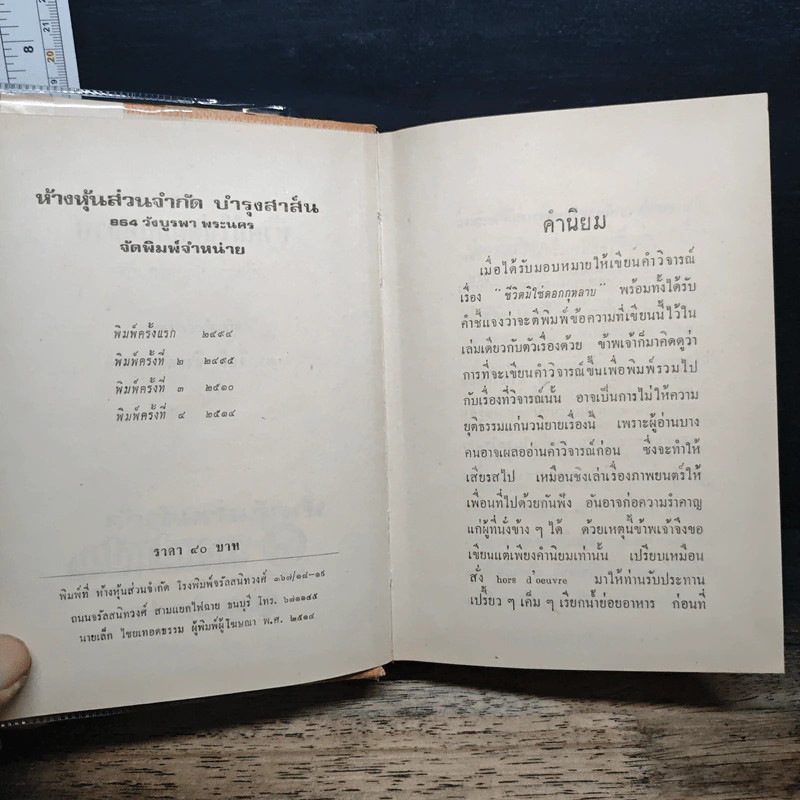 8
20
21
ห้างหุ้นส่วนจำกัด บำรุงสาส์น
854 วังบูรพา พระนคร
จัดพิมพ์จำหน่าย
พิมพ์ครั้งแรก ๒๔๙๔
พิมพ์ครั้งที่ ๒ ๒๔๙๕
พิมพ์ครั้งที่ ๓ ๒๕๑๐
พิมพ์ครั้งที่ ๔ ๒๕๑๔
ราคา ๔๐ บาท
พิมพ์ที่ ห้างหุ้นส่วนจำกัด โรงพิมพ์จรัลสนิทวงศ์ ๓๖๗/๑๘-๑๙
ถนนจรัลสนิทวงศ์ สามแยกไฟฉาย ธนบุรี โทร. ๖๘๑๑๔๕
นายเล็ก ไชยเทอดธรรม ผู้พิมพ์ผู้โฆษณา พ.ศ. ๒๕๑๔
คำนิยม
เมื่อได้รับมอบหมายให้เขียนคำวิจารณ์
เรื่อง "ชีวิตมิใช่ดอกกุหลาบ" พร้อมทั้งได้รับ
คำชี้แจงว่าจะตีพิมพ์ข้อความที่เขียนนี้ไว้ใน
เล่มเดียวกับตัวเรื่องด้วย ข้าพเจ้าก็มาคิดดูว่า
การที่จะเขียนคำวิจารณ์ขึ้นเพื่อพิมพ์รวมไป
กับเรื่องที่วิจารณ์นั้น อาจเป็นการไม่ให้ความ
ยุติธรรมแก่นวนิยายเรื่องนี้ เพราะผู้อ่านบาง
คนอาจเผลออ่านคำวิจารณ์ก่อน ซึ่งจะทำให้
เสียรสไป เหมือนชิงเล่าเรื่องภาพยนตร์ให้
เพื่อนที่ไปด้วยกันฟัง อันอาจก่อความรำคาญ
แก่ผู้ที่นั่งข้าง ๆ ได้ ด้วยเหตุนี้ข้าพเจ้าจึงขอ
เขียนแต่เพียงคำนิยมเท่านั้น เปรียบเหมือน
สั่ง hors d'oeuvre มาให้ท่านรับประทาน
เปรี้ยว ๆ เค็ม ๆ เรียกน้ำย่อยอาหาร ก่อนที่